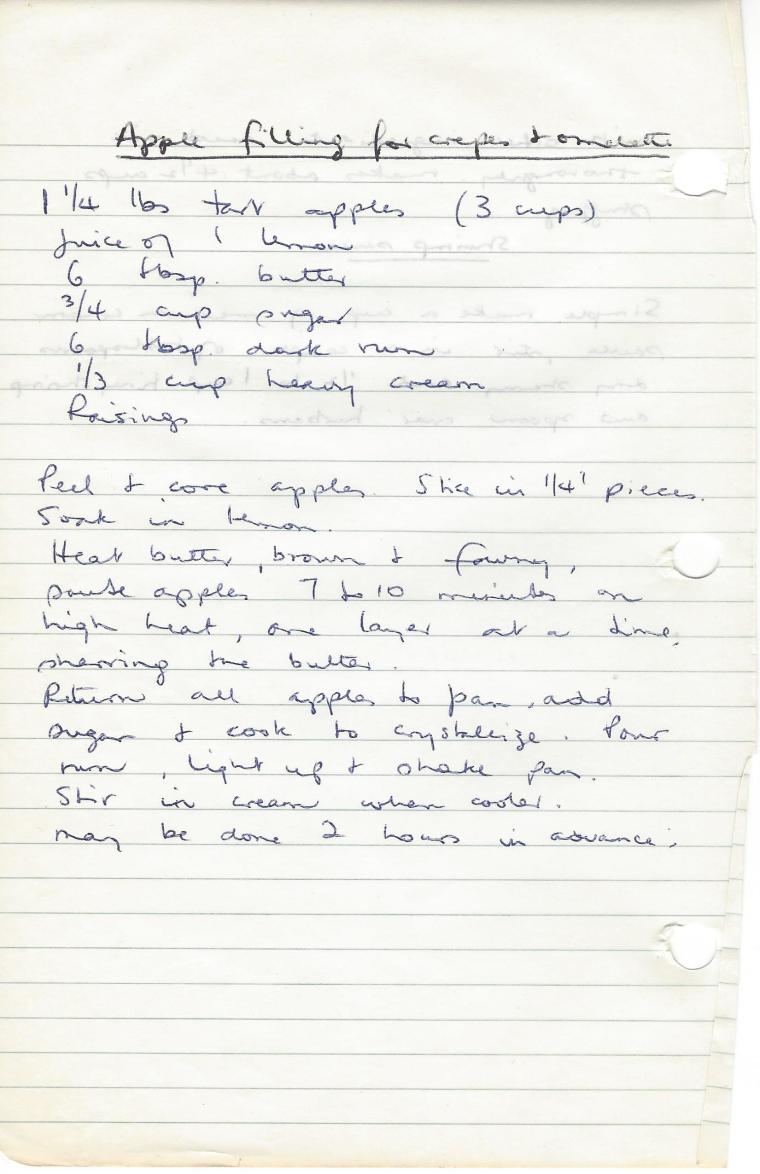 Apple filling for crepes & omelette
1 1/4 lbs tart apples (3 cups)
Juice of 1 lemon
6 tbsp. butter
3/4 cup sugar
6 tbsp. dark rum
1/3 cup heavy cream
Raisings
Peel & core apples. Slice in 1/4" pieces.
Soak in lemon.
Heat butter, brown & foamy,
saute apples 7 to 10 minutes on
high heat, one layer at a time,
sharring the butter.
Return all apples to pan, add
sugar & cook to crystallize. Pour
rum, light up & shake pan.
Stir in cream when cooler.
may be done 2 hours in advance.